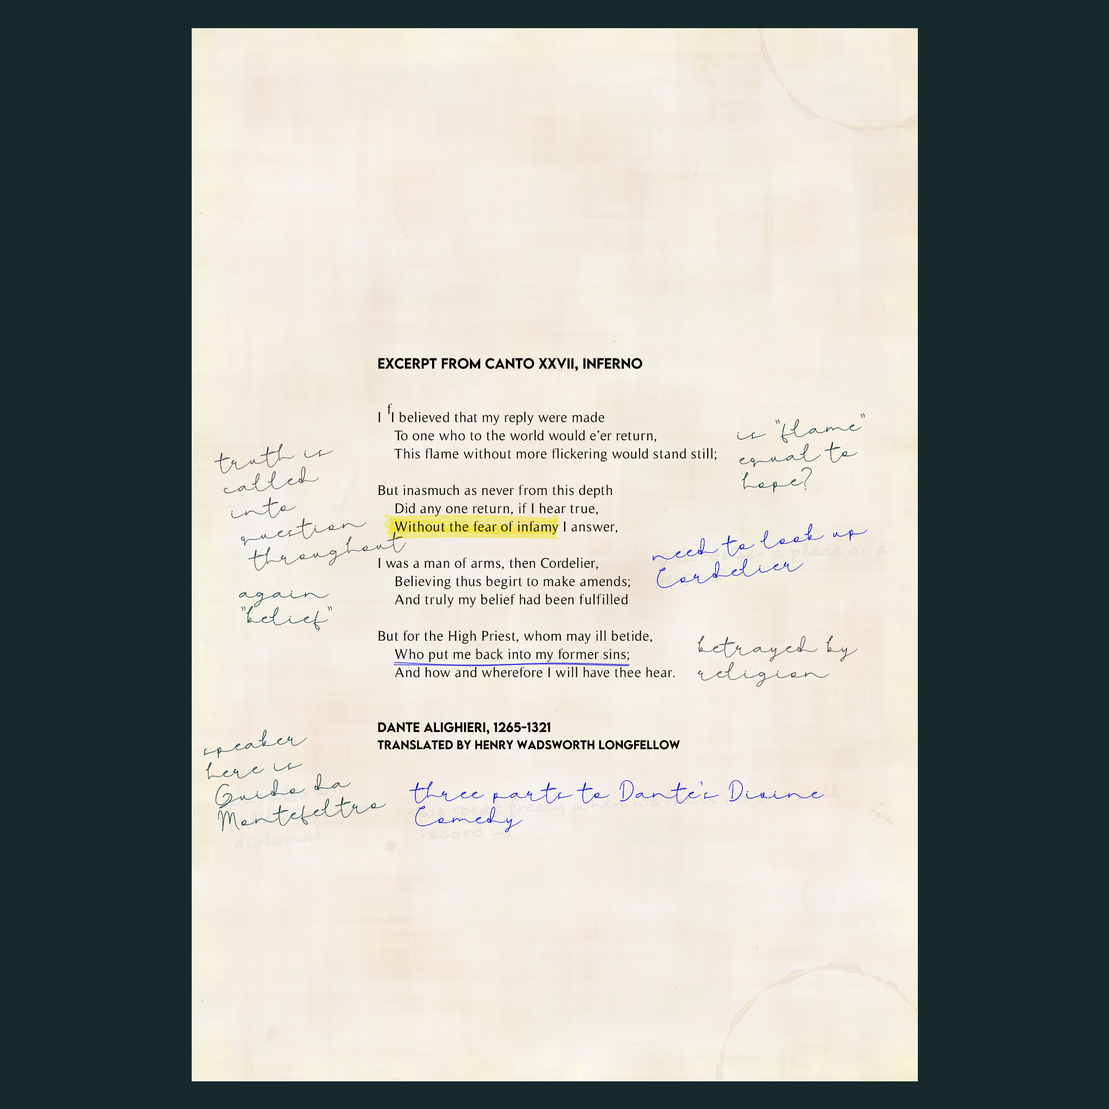 EXCERPT FROM CANTO XXVII, INFERNO
I fI believed that my reply were made
To one who to the world would e'er return,
This flame without more flickering would stand still;
is "flame"
equal to
hope?
truth is
called
into
question
throughout
But inasmuch as never from this depth
Did any one return, if I hear true,
Without the fear of infamy I answer,
need to look up
Cordelier
a place or a
I was a man of arms, then Cordelier,
Believing thus begirt to make amends;
And truly my belief had been fulfilled
again
"belief"
But for the High Priest, whom may ill betide,
Who put me back into my former sins;
And how and wherefore I will have thee hear.
betrayed by
religion
DANTE ALIGHIERI, 1265-1321
TRANSLATED BY HENRY WADSWORTH LONGFELLOW
speaker
here is
Guido da
Montefeltro
diplomat
three parts to Dante's Divine
Comedy
speak freely when we
record